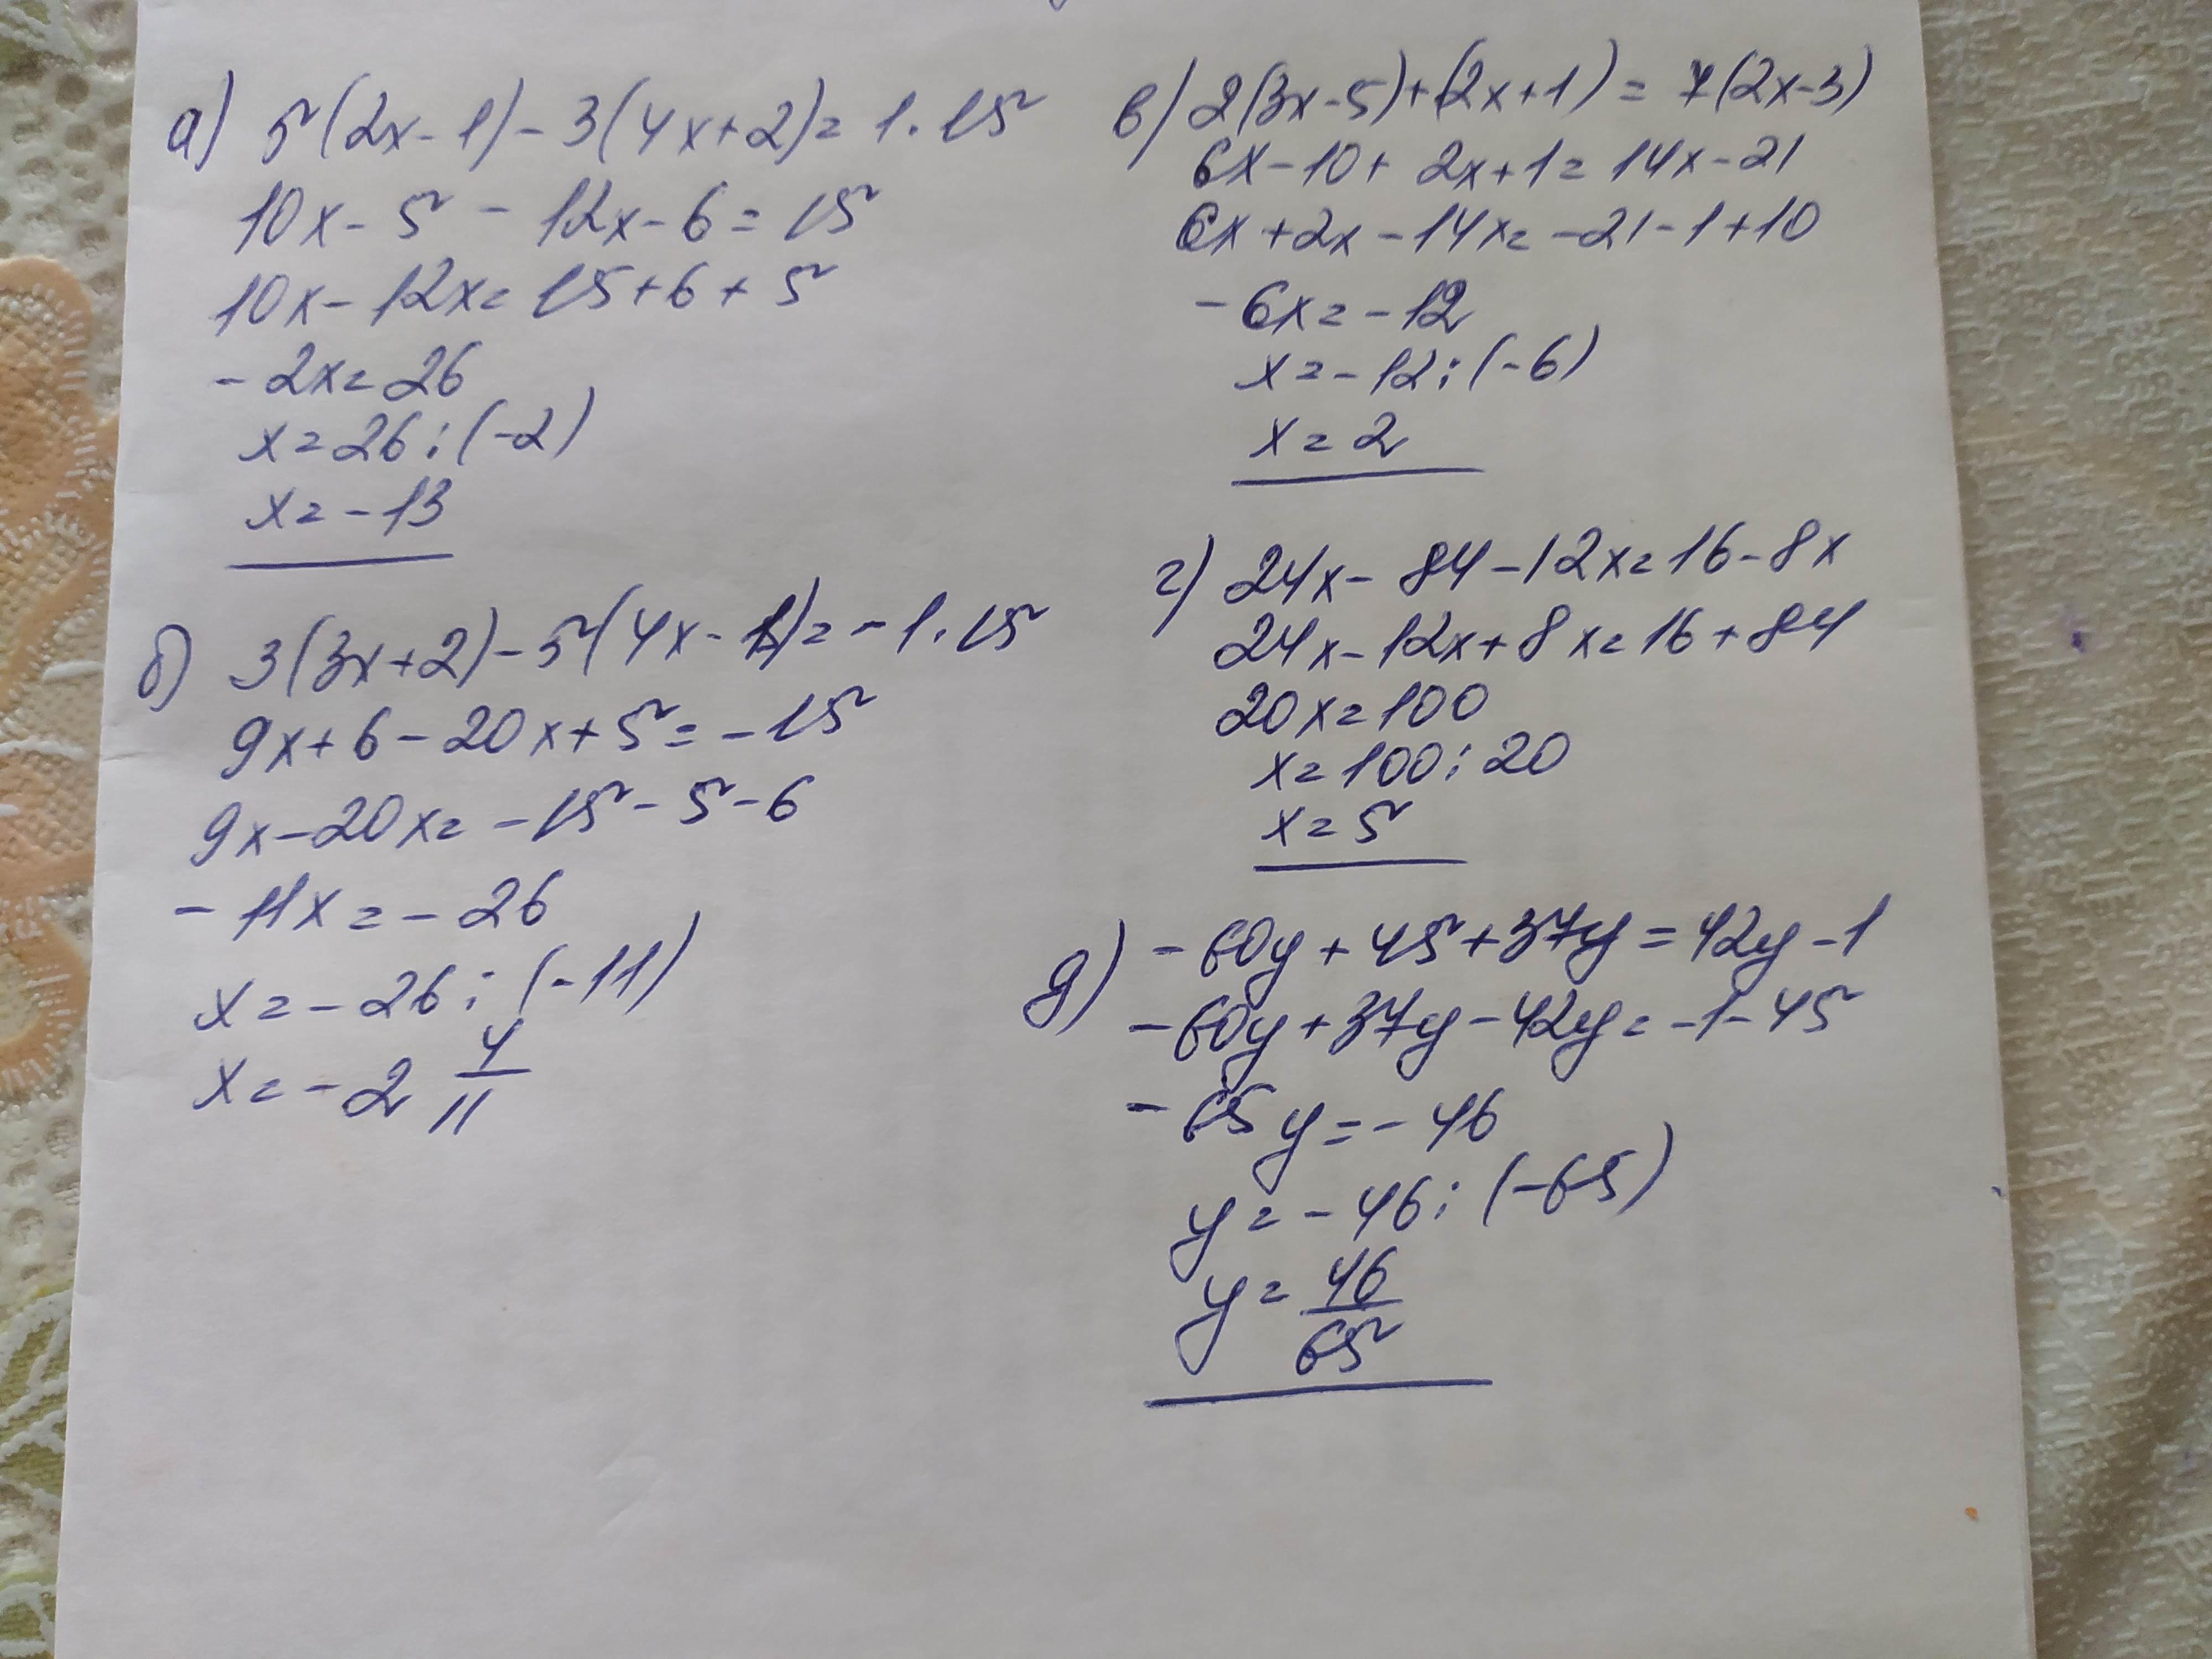 а) 5(2x-1)-3(4x+2)=1.15
10x-5-12x-6=15
10x-12x=15+6+5
-2x=26
x=26:(-2)
x=-13
б) 3(3x+2)-5(4x-1)=-1.15
9x+6-20x+5=-15
9x-20x=-15-5-6
-11x=-26
x=-26:(-11)
x=-2 4/11
в) 2(3x-5)+(2x+1)=7(2x-3)
6x-10+2x+1=14x-21
6x+2x-14x=-21-1+10
-6x=-12
x=-12:(-6)
x=2
г) 24x-84-12x=16-8x
24x-12x+8x=16+84
20x=100
x=100:20
x=5
д) -60y+45+37y=42y-1
-60y+37y-42y=-1-45
-65y=-46
y=-46:(-65)
y=46/65